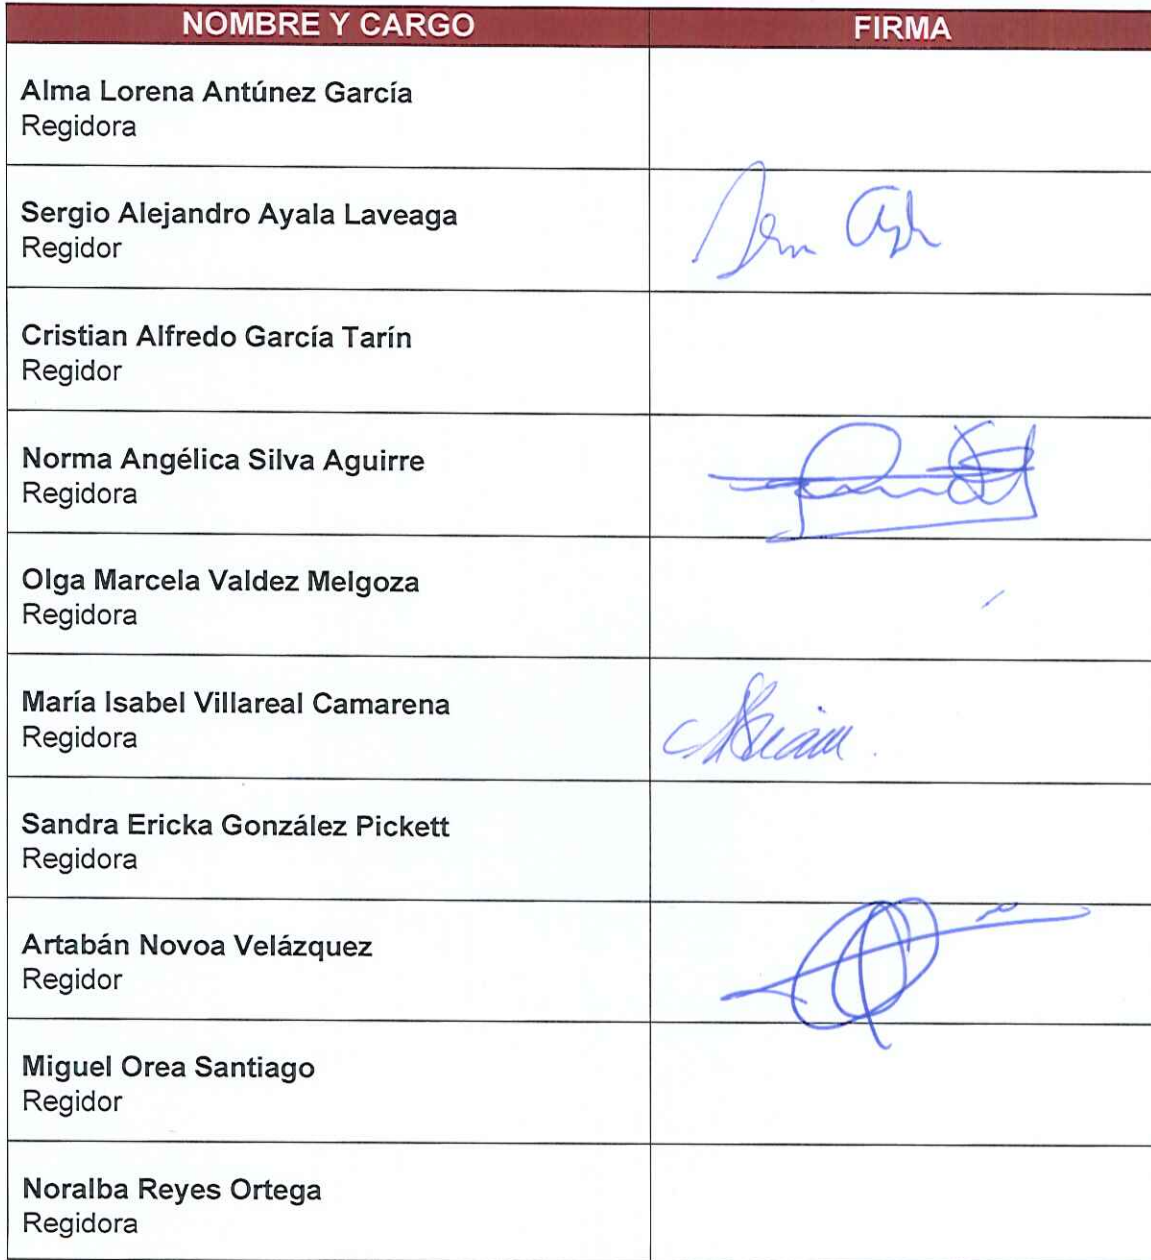 NOMBRE Y CARGO FIRMA
Alma Lorena Antúnez García
Regidora
Sergio Alejandro Ayala Laveaga
Regidor
Cristian Alfredo García Tarín
Regidor
Norma Angélica Silva Aguirre
Regidora
Olga Marcela Valdez Melgoza
Regidora
María Isabel Villareal Camarena
Regidora
Sandra Ericka González Pickett
Regidora
Artabán Novoa Velázquez
Regidor
Miguel Orea Santiago
Regidor
Noralba Reyes Ortega
Regidora